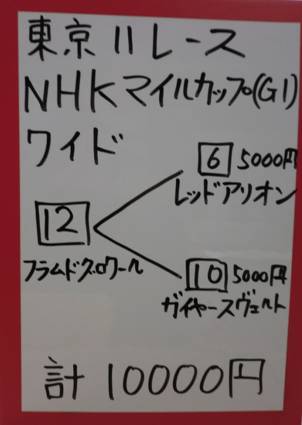 東京11レース
NHKマイルカップ(G1)
ワイド
6 5000円
レッドアリオン
12
フラムドグロワール
10 5000円
ガイヤースヴェルト
計10000円